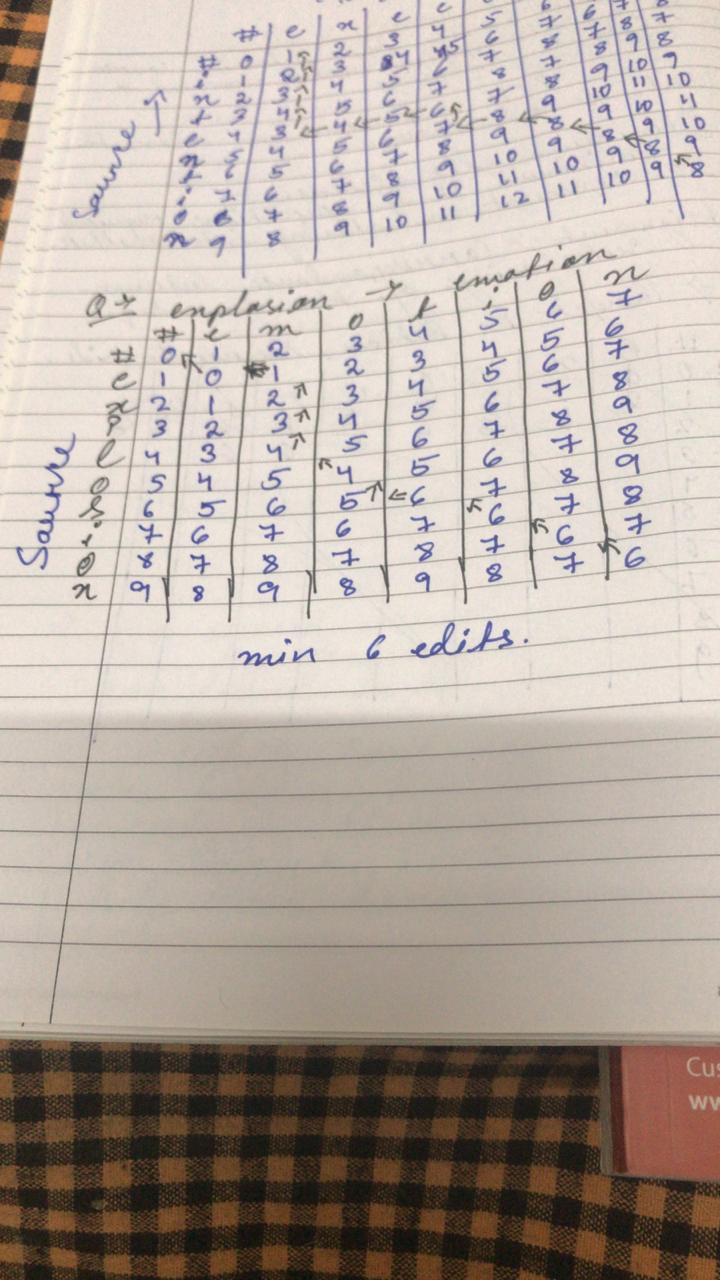 # e x e c 5 6 7 8
# 0 1 2 3 4 5 6 7 8 7
i 1 2 3 4 5 6 7 8 9 8
n 2 3 4 5 6 7 8 9 10 9
t 3 4 5 6 7 8 9 10 11 10
e 4 3 4 5 6 7 8 9 10 11
n 5 4 5 6 7 8 8 8 9 10
t 6 5 6 7 8 9 9 9 8 9
i 7 6 7 8 9 10 10 9 9 8
o 8 7 8 9 10 11 11 10
n 9 8 9 10 11 12
Q → explosion → emotion
# e m o t i o n
# 0 1 2 3 4 5 6 7
e 1 0 1 2 3 4 5 6
x 2 1 2 3 4 5 6 7
p 3 2 3 4 5 6 7 8
l 4 3 4 5 6 7 8 9
o 5 4 5 4 5 6 7 8
s 6 5 6 5 6 7 8 9
i 7 6 7 6 7 6 7 8
o 8 7 8 7 8 7 6 7
n 9 8 9 8 9 8 7 6
min 6 edits.
Cus
ww